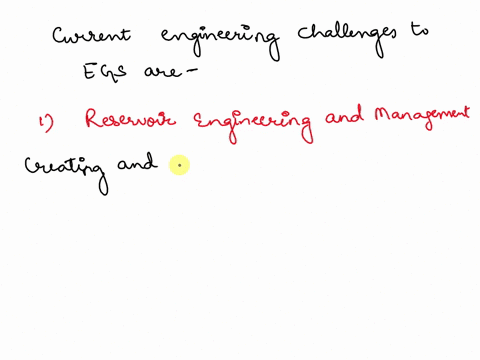 Current engineering challenges to
EGS are -
1) Reservoir Engineering and Management
Creating and